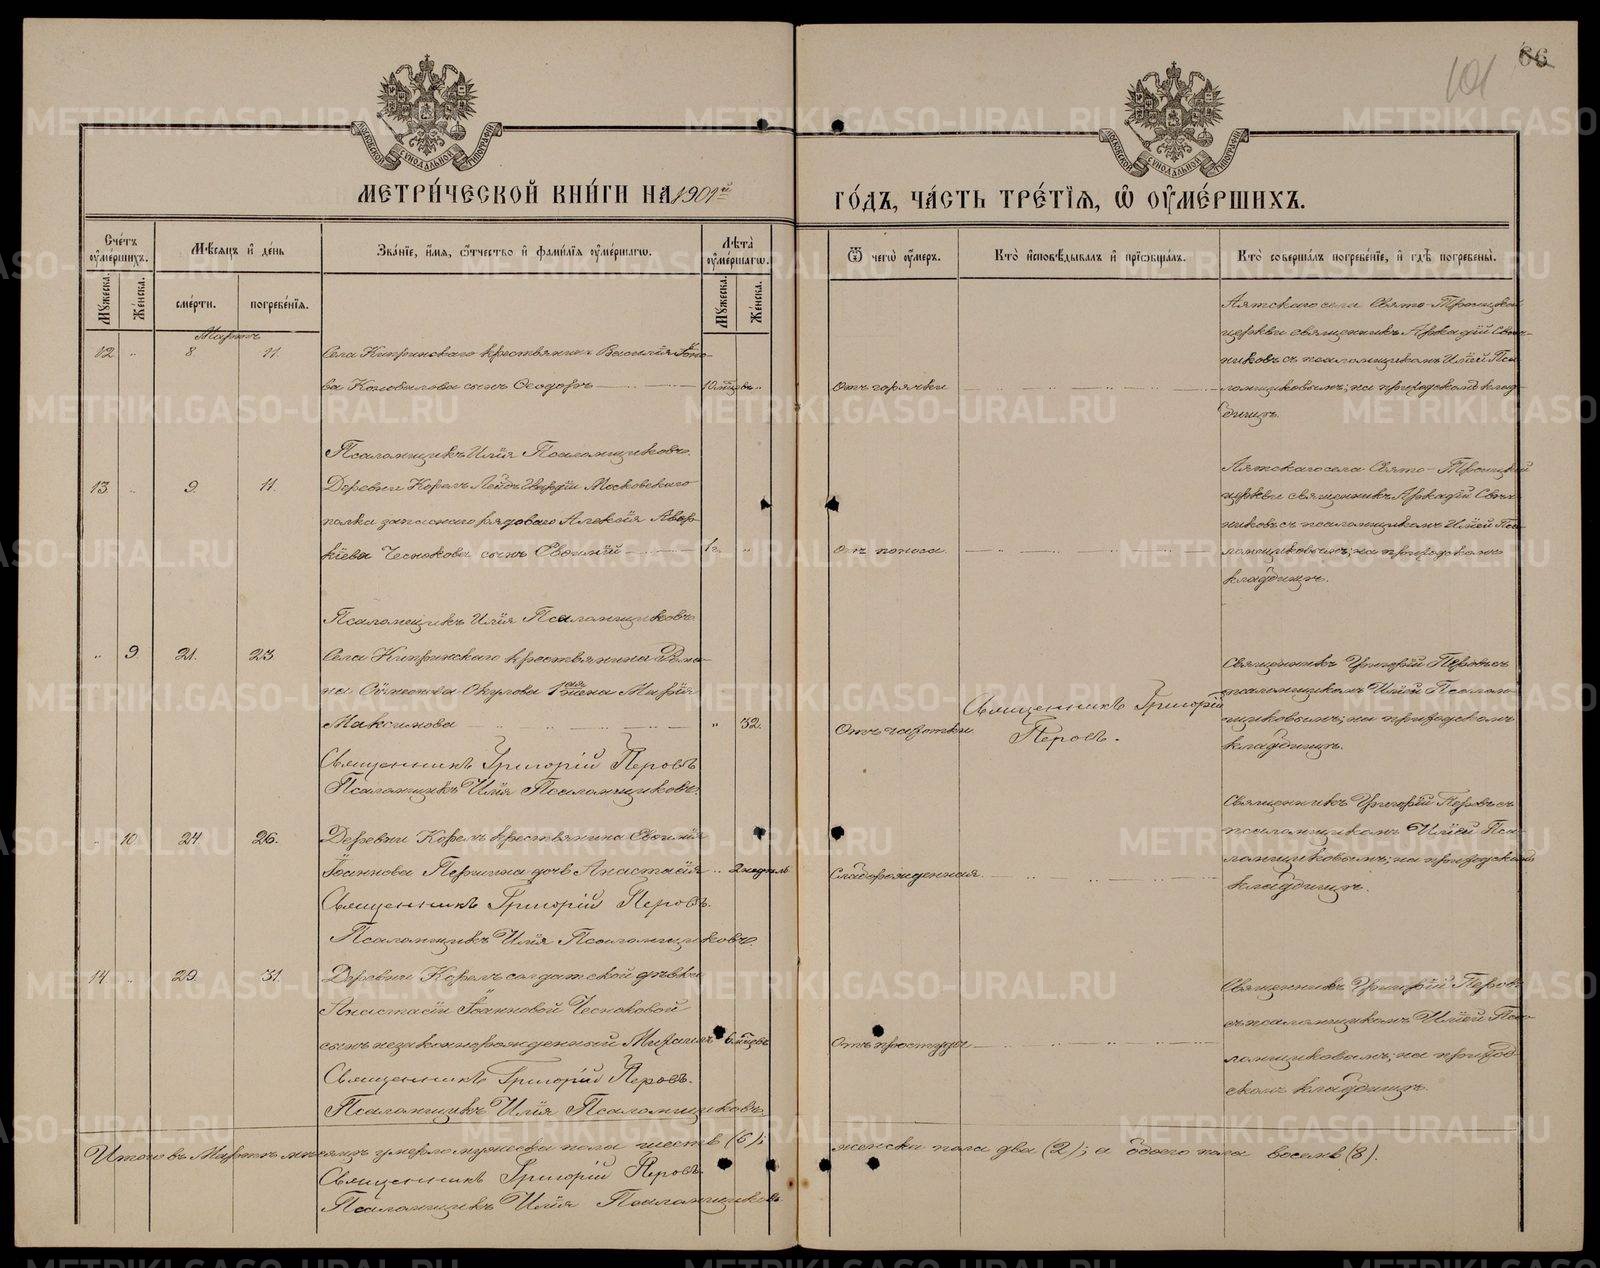 101
66
МОСКОВСКОЙ СУНОДАЛЬНОЙ ТИПОГРАФІИ
МОСКОВСКОЙ СУНОДАЛЬНОЙ ТИПОГРАФІИ
МЕТРИ́ЧЕСКОЙ КНИ́ГИ НА 1901й
ГО́ДЪ, ЧА́СТЬ ТРЕ́ТІѦ, Ѽ ОУ҆МЕ́РШИХЪ.
Сче́тъ оу҆ме́ршихъ.
Мꙋжеска.
Же́нска.
Мѣ́сѧцъ и҆ де́нь
сме́рти.
погребе́нїѧ.
Зва́нїе, и҆́мѧ, ѻ҆́тчество и҆ фами́лїѧ оу҆ме́ршагѡ.
Лѣ́та оу҆ме́ршагѡ.
Мꙋжеска.
Же́нска.
Ѿ чегѡ̀ оу҆́меръ.
Кто̀ и҆сповѣ́дывалъ и҆ прїѡбща́лъ.
Кто̀ соверша́лъ погребе́нїе, и҆ гдѣ̀ погребены̀.
Мартъ
12. „ 8. 11. Села Кипринскаго крестьянина Василія
ва Коновалова сынъ Ѳеодоръ 10 мѣцевъ „
Отъ горячки
Аятскаго села Свято-Троицкой
церкви священникъ Аркадій Свѣч-
никовъ съ псаломщикомъ Иліей Пса-
ломщиковымъ; на приходскомъ клад-
бищѣ.
Псаломщикъ Илія Псаломщиковъ.
13. „ 9. 11. Деревни Корелъ Лейбъ Гвардіи Московскаго
полка запаснаго рядоваго Алексія Авер-
кіева Чеснокова сынъ Евѳимій 1 г. „
Отъ поноса.
Аятскаго села Свято-Троицкой
церкви священникъ Аркадій Свѣч-
никовъ съ псаломщикомъ Иліей Пса-
ломщиковымъ; на приходскомъ
кладбищѣ.
Псаломщикъ Илія Псаломщиковъ.
„ 9. 21. 23. Села Кипринскаго крестьянина Рома-
на Окулова 1ая жена Марія
Максимова „ 32.
Отъ чахотки.
Священникъ Григорій
Перовъ.
Священникъ Григорій Перовъ съ
псаломщикомъ Иліей Псалом-
щиковымъ; на приходскомъ
кладбищѣ.
Священникъ Григорій Перовъ
Псаломщикъ Илія Псаломщиковъ.
„ 10. 24. 26. Деревни Корелъ крестьянина Евѳимія
Іоаннова Першина дочь Анастасія „ 2 недѣль
Слаборожденная.
Священникъ Григорій Перовъ съ
псаломщикомъ Иліей Пса-
ломщиковымъ; на приходскомъ
кладбищѣ.
Священникъ Григорій Перовъ.
Псаломщикъ Илія Псаломщиковъ.
14. „ 29. 31. Деревни Корелъ солдатской дѣвки
Анастасіи Іоанновой Чесноковой
сынъ незаконнорожденный Михаилъ 6 мѣцевъ
Отъ простуды
Священникъ Григорій Перовъ
съ псаломщикомъ Иліей Пса-
ломщиковымъ; на приход-
скомъ кладбищѣ.
Священникъ Григорій Перовъ.
Псаломщикъ Илія Псаломщиковъ.
Итого въ Мартѣ мѣсяцѣ умерло мужеска пола шесть (6); женска пола два (2); а обоего пола восемь (8).
Священникъ Григорій Перовъ.
Псаломщикъ Илія Псаломщиковъ.
METRIKI.GASO-URAL.RU